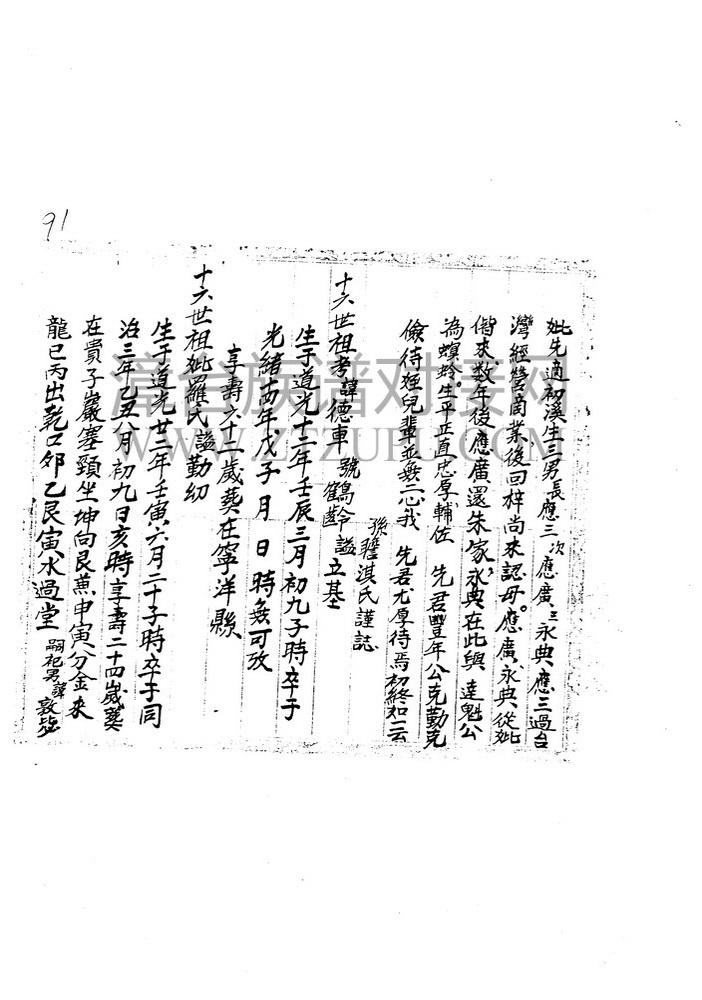 91
妣先適初溪生三男長應三次應廣三永典應三過台
灣經營商業後回梓尚來認母應廣永典從妣
偕來数年後應廣還朱家永典在此與 達魁公
為螟蛉生平正直忠厚輔佐 先君豐年公克勤克
儉待姪兒輩並無二心我 先君尤厚待焉初終如一云
孫 淇氏謹誌
十六世祖考諱德車 號鶴齡 謚立基
生于道光十二年壬辰三月初九子時卒于
光緒十四年戊子 月 日 時無可攷
享壽六十二歲葬在寧洋縣
十六世祖妣羅氏謚勤幼
生于道光廿二年壬寅六月二十子時卒于同
治三年乙丑八月初九日亥時享壽二十四歲葬
在貴子巖寨頸坐坤向艮兼申寅分金來
龍巳丙出乾口卯乙艮寅水過堂 嗣祀男諱敦
漳台族谱对接网
WWW.ZTZUPU.COM